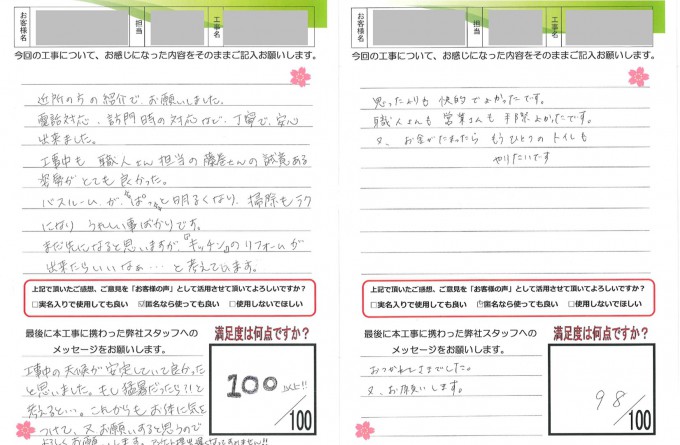 お客様名
担当
工事名
今回の工事について、お感じになった内容をそのままご記入お願いします。
近所の方の紹介で、お願いしました。
電話対応、訪問時の対応など、丁寧で、安心
出来ました。
工事中も 職人さん 担当の 藤屋さんの 誠意ある
姿勢が とても 良かった。
バスルームが、"ぱっ"と 明るくなり、掃除もラク
になり うれしい事ばかりです。
まだ先になると思いますが、"キッチン"の リフォームが
出来たらいいなぁ……と 考えています。
上記で頂いたご感想、ご意見を「お客様の声」として活用させて頂いてよろしいですか?
□実名入りで使用しても良い ☑匿名なら使っても良い □使用しないでほしい
最後に本工事に携わった弊社スタッフへの
メッセージをお願いします。
工事中の天候が 安定していて 良かった
と思いました。もし猛暑だったら?!と
考えると…。これからも お体に気を
つけて、又 お願いすると思うので
よろしくお願いします。アンケート提出遅くなってすみません!!
満足度は何点ですか?
100 以上!!
/100
お客様名
担当
工事名
今回の工事について、お感じになった内容をそのままご記入お願いします。
思ったよりも 快的で よかったです。
職人さんも 営業さんも 手際よかったです。
又、お金がたまったら もうひとつの トイレも
やりたいです
上記で頂いたご感想、ご意見を「お客様の声」として活用させて頂いてよろしいですか?
□実名入りで使用しても良い ☑匿名なら使っても良い □使用しないでほしい
最後に本工事に携わった弊社スタッフへの
メッセージをお願いします。
おつかれさまでした。
又、お願いします。
満足度は何点ですか?
98
/100